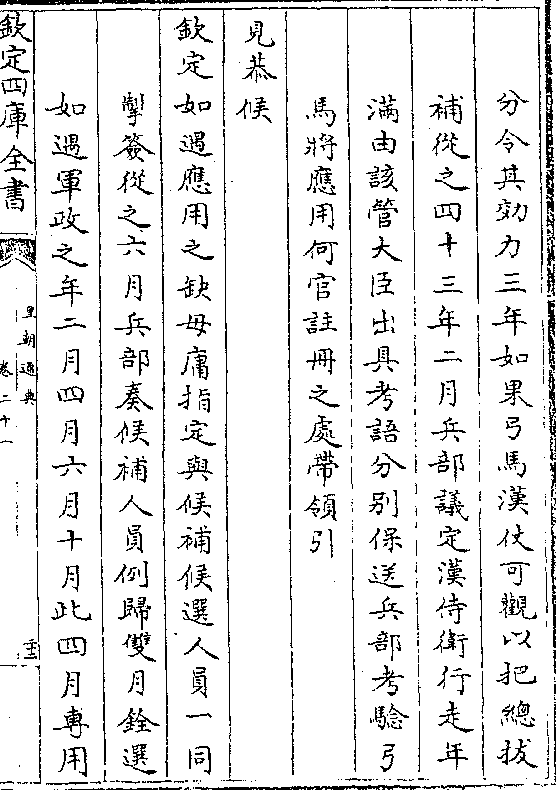 分令其効力三年如果弓馬漢仗可觀以把總拔
補從之四十三年二月兵部議定漢侍衛行走年
滿由該管大臣出具考語分别保送兵部考驗弓
馬將應用何官註冊之處帶領引
見恭候
欽定如遇應用之缺毋庸指定與候補候選人員一同
掣簽從之六月兵部奏候補人員例歸雙月銓選
如遇軍政之年二月四月六月十月此四月專用
欽定四庫全書
皇朝通典
卷二十一